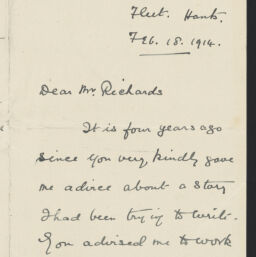 Fleet. Hants.
Feb. 18. 1914.
Dear Mr. Richards
It is four years ago
since you very kindly gave
me advice about a story
I had been trying to write.
You advised me to work